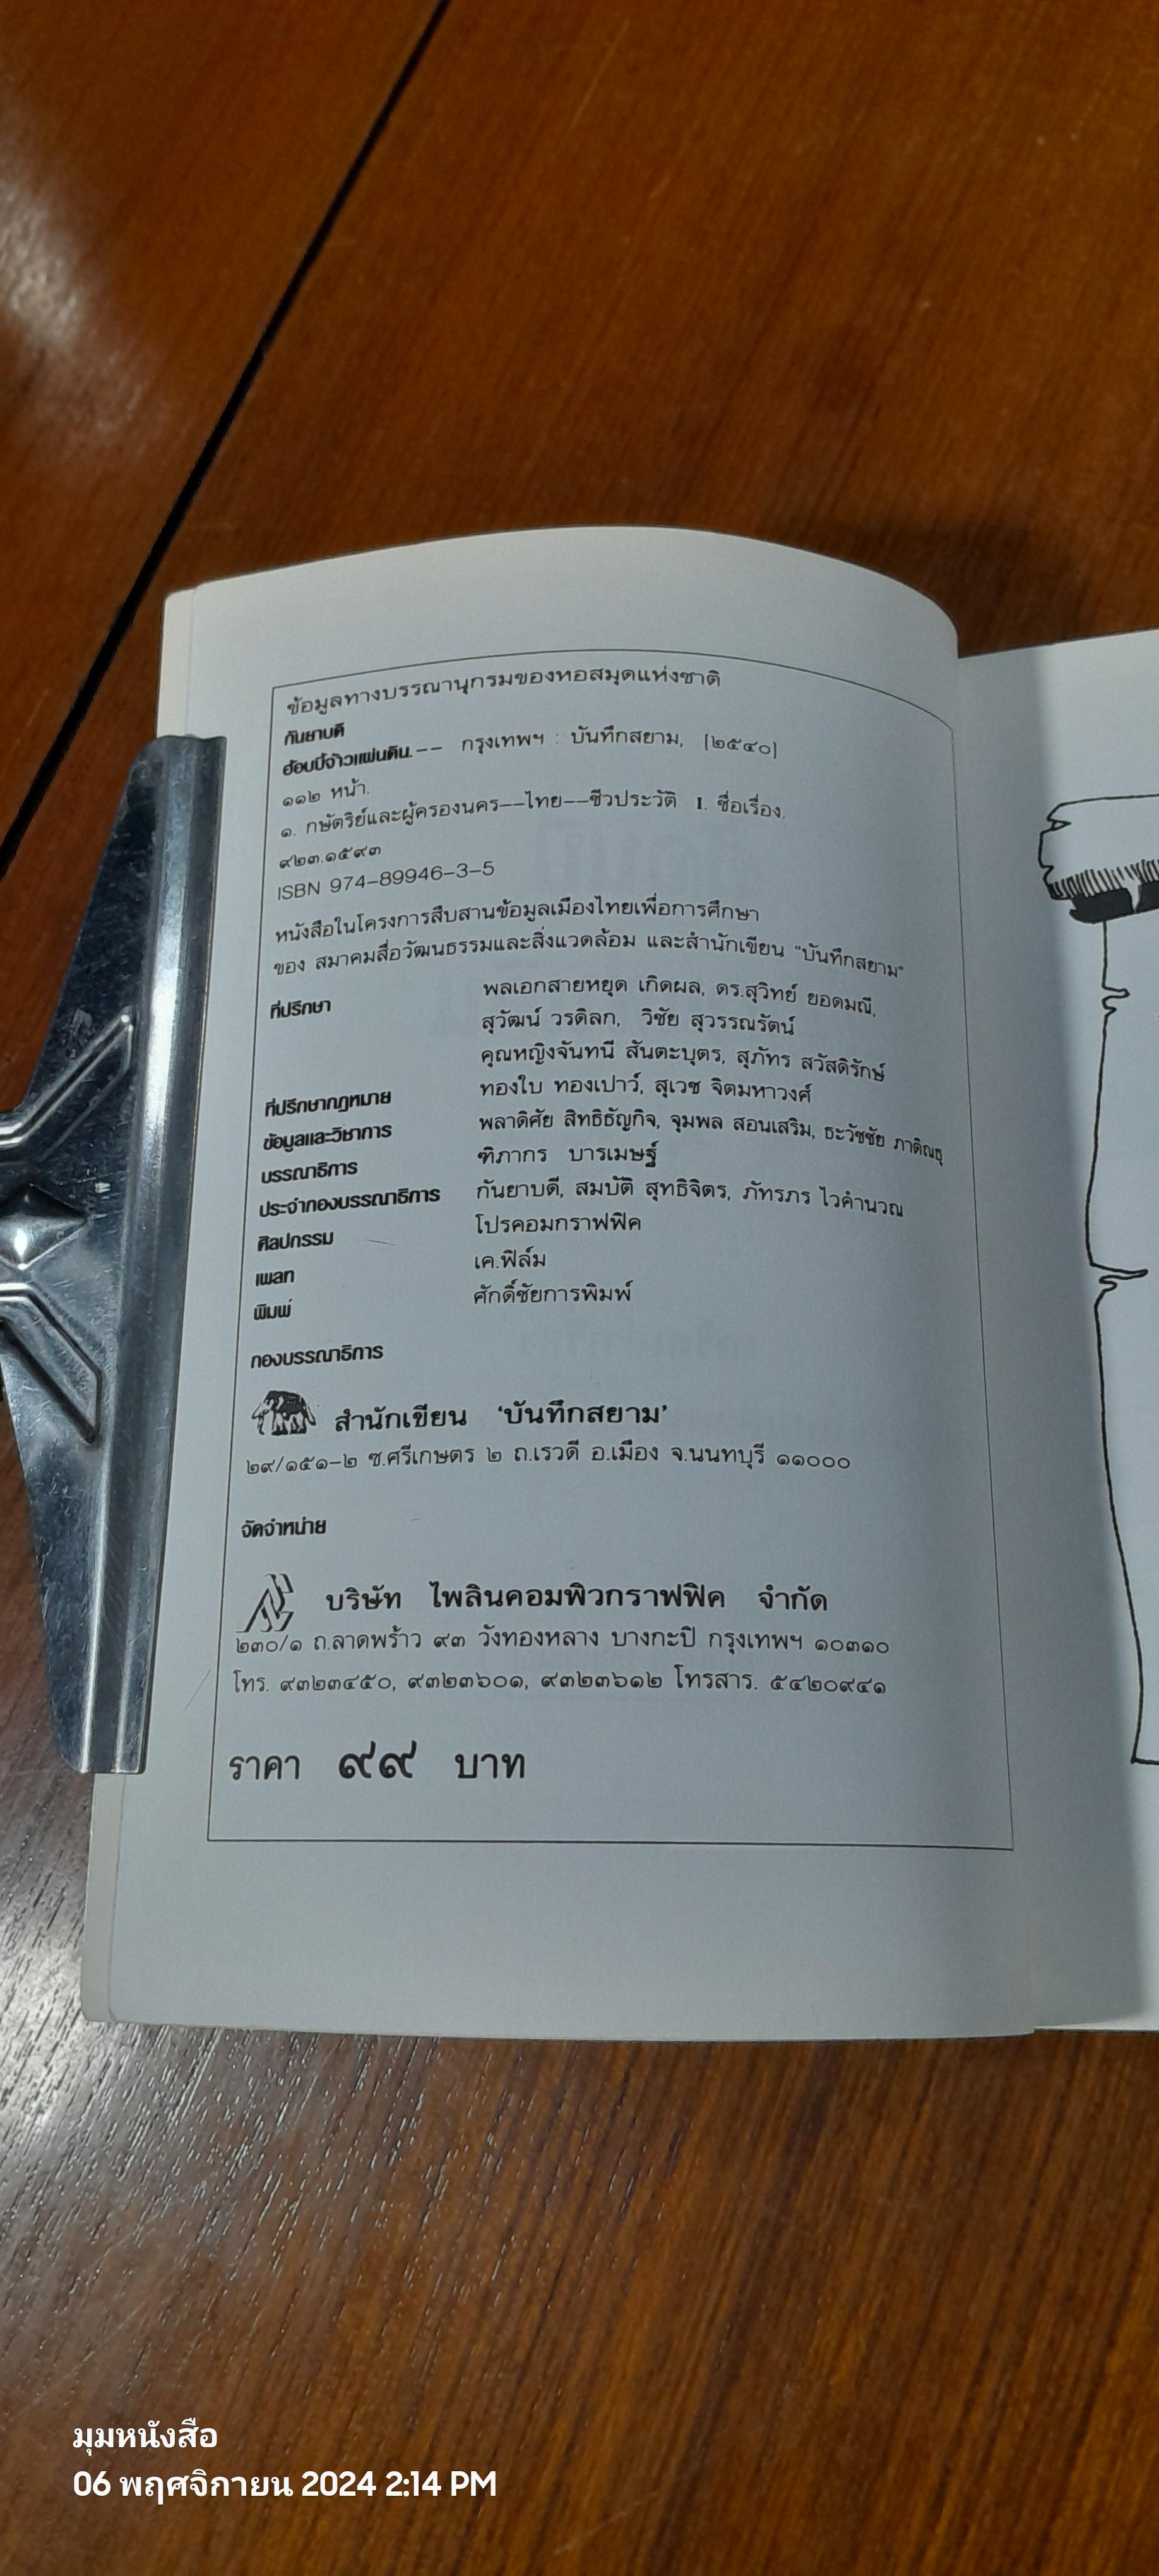 ข้อมูลทางบรรณานุกรมของหอสมุดแห่งชาติ
กันยาบดี
ฮ้อบปี้จ้าวแผ่นดิน.-- กรุงเทพฯ : บันทึกสยาม, [๒๕๔๐]
๑๑๒ หน้า.
๑. กษัตริย์และผู้ครองนคร--ไทย--ชีวประวัติ I. ชื่อเรื่อง.
๙๒๓.๑๕๙๓
ISBN 974-89946-3-5
หนังสือในโครงการสืบสานข้อมูลเมืองไทยเพื่อการศึกษา
ของ สมาคมสื่อวัฒนธรรมและสิ่งแวดล้อม และสำนักเขียน "บันทึกสยาม"
ที่ปรึกษา พลเอกสายหยุด เกิดผล, ดร.สุวิทย์ ยอดมณี,
สุวัฒน์ วรดิลก, วิชัย สุวรรณรัตน์
คุณหญิงจันทนี สันตะบุตร, สุภัทร สวัสดิรักษ์
ที่ปรึกษากฎหมาย ทองใบ ทองเปาว์, สุเวช จิตมหาวงศ์
ข้อมูลและวิชาการ พลาดิศัย สิทธิธัญกิจ, จุมพล สอนเสริม, ธะวัชชัย ภาติณธุ
บรรณาธิการ ฑิภากร บารเมษฐ์
ประจำกองบรรณาธิการ กันยาบดี, สมบัติ สุทธิจิตร, ภัทรภร ไวคำนวณ
ศิลปกรรม โปรคอมกราฟฟิค
เพลท เค.ฟิล์ม
พิมพ์ ศักดิ์ชัยการพิมพ์
กองบรรณาธิการ
สำนักเขียน 'บันทึกสยาม'
๒๙/๑๕๑-๒ ซ.ศรีเกษตร ๒ ถ.เรวดี อ.เมือง จ.นนทบุรี ๑๑๐๐๐
จัดจำหน่าย
บริษัท ไพลินคอมพิวกราฟฟิค จำกัด
๒๓๐/๑ ถ.ลาดพร้าว ๙๓ วังทองหลาง บางกะปิ กรุงเทพฯ ๑๐๓๑๐
โทร. ๙๓๒๓๔๕๐, ๙๓๒๓๖๐๑, ๙๓๒๓๖๑๒ โทรสาร. ๕๔๒๐๙๔๑
ราคา ๙๙ บาท
มุมหนังสือ
06 พฤศจิกายน 2024 2:14 PM